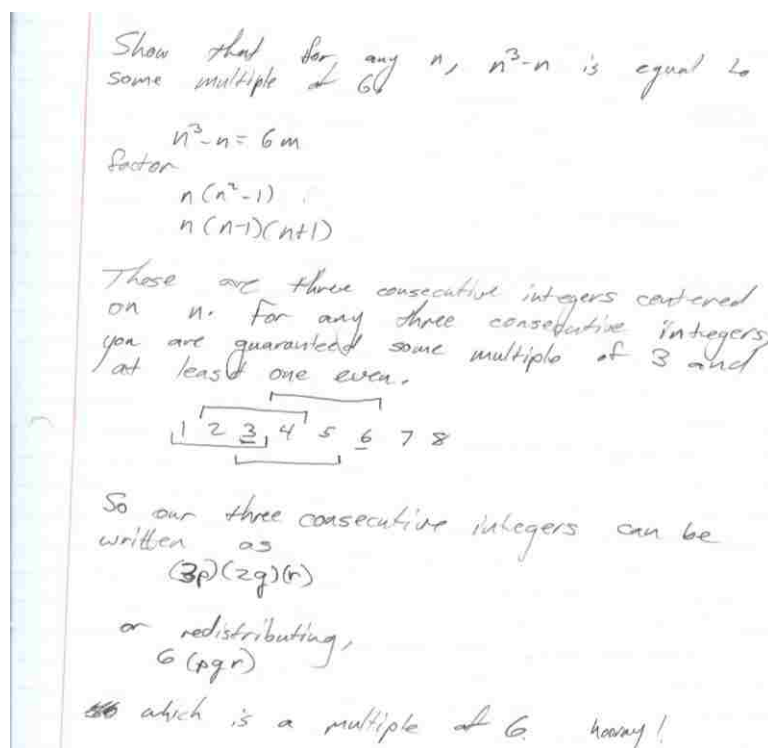 Show that for any n, n³-n is equal to
some multiple of 6.
n³-n = 6m
factor
n(n²-1)
n(n-1)(n+1)
These are three consecutive integers centered
on n. For any three consecutive integers,
you are guaranteed some multiple of 3 and
at least one even.
1 2 3 4 5 6 7 8
So our three consecutive integers can be
written as
(3p)(2q)(r)
or redistributing,
6(pqr)
which is a multiple of 6. hooray!